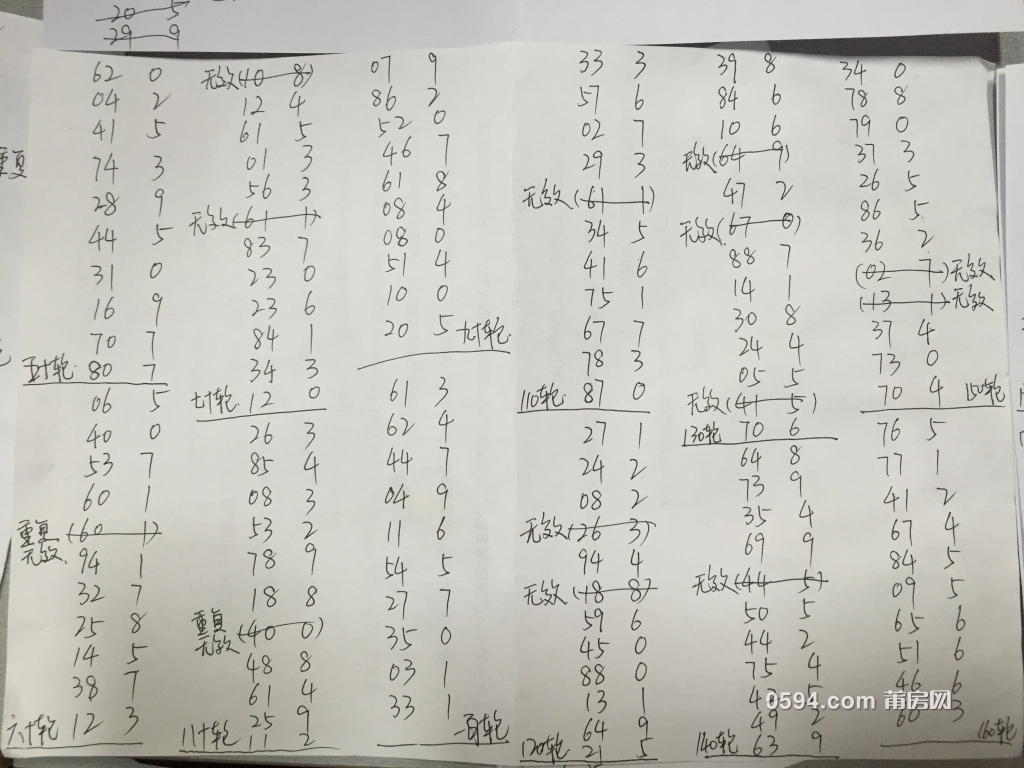 20 5
29 9
重复
62 0
04 2
41 5
74 3
28 9
44 5
31 0
16 9
70 7
五十轮 80 7
06 5
40 0
53 7
60 1
重复无效 (60 1)
94 1
32 7
25 8
14 5
38 7
六十轮 12 3
无效(40 8)
12 4
61 5
01 3
56 3
无效(61 1)
83 7
23 0
23 6
84 1
34 3
七十轮 12 0
26 3
85 4
08 3
53 2
78 9
18 8
重复无效(40 0)
48 8
61 4
25 9
八十轮 11 2
07 9
86 2
52 0
46 7
61 8
08 4
08 0
51 4
10 0
20 5 九十轮
61 3
62 4
44 7
04 9
11 6
54 5
27 7
35 0
03 1
33 1
一百轮
33 3
57 6
02 7
29 3
无效(61 1)
34 5
41 6
75 1
67 7
78 3
110轮 87 0
27 1
24 2
08 2
无效(26 3)
94 4
无效(18 8)
59 6
45 0
88 0
13 1
64 9
120轮 21 5
39 8
84 6
10 6
无效(64 9)
47 2
无效(67 0)
88 7
14 1
30 8
24 4
05 5
无效(41 5)
130轮 70 6
64 8
73 9
35 4
69 9
无效(44 5)
50 5
44 2
75 4
49 2
140轮 63 9
34 0
78 8
79 0
37 3
26 5
86 5
36 2
(02 7)无效
(13 1)无效
37 4
73 0
70 4 150轮
76 5
77 1
41 2
67 4
84 5
09 5
65 6
51 6
46 6
60 3
160轮
0594.com 莆房网